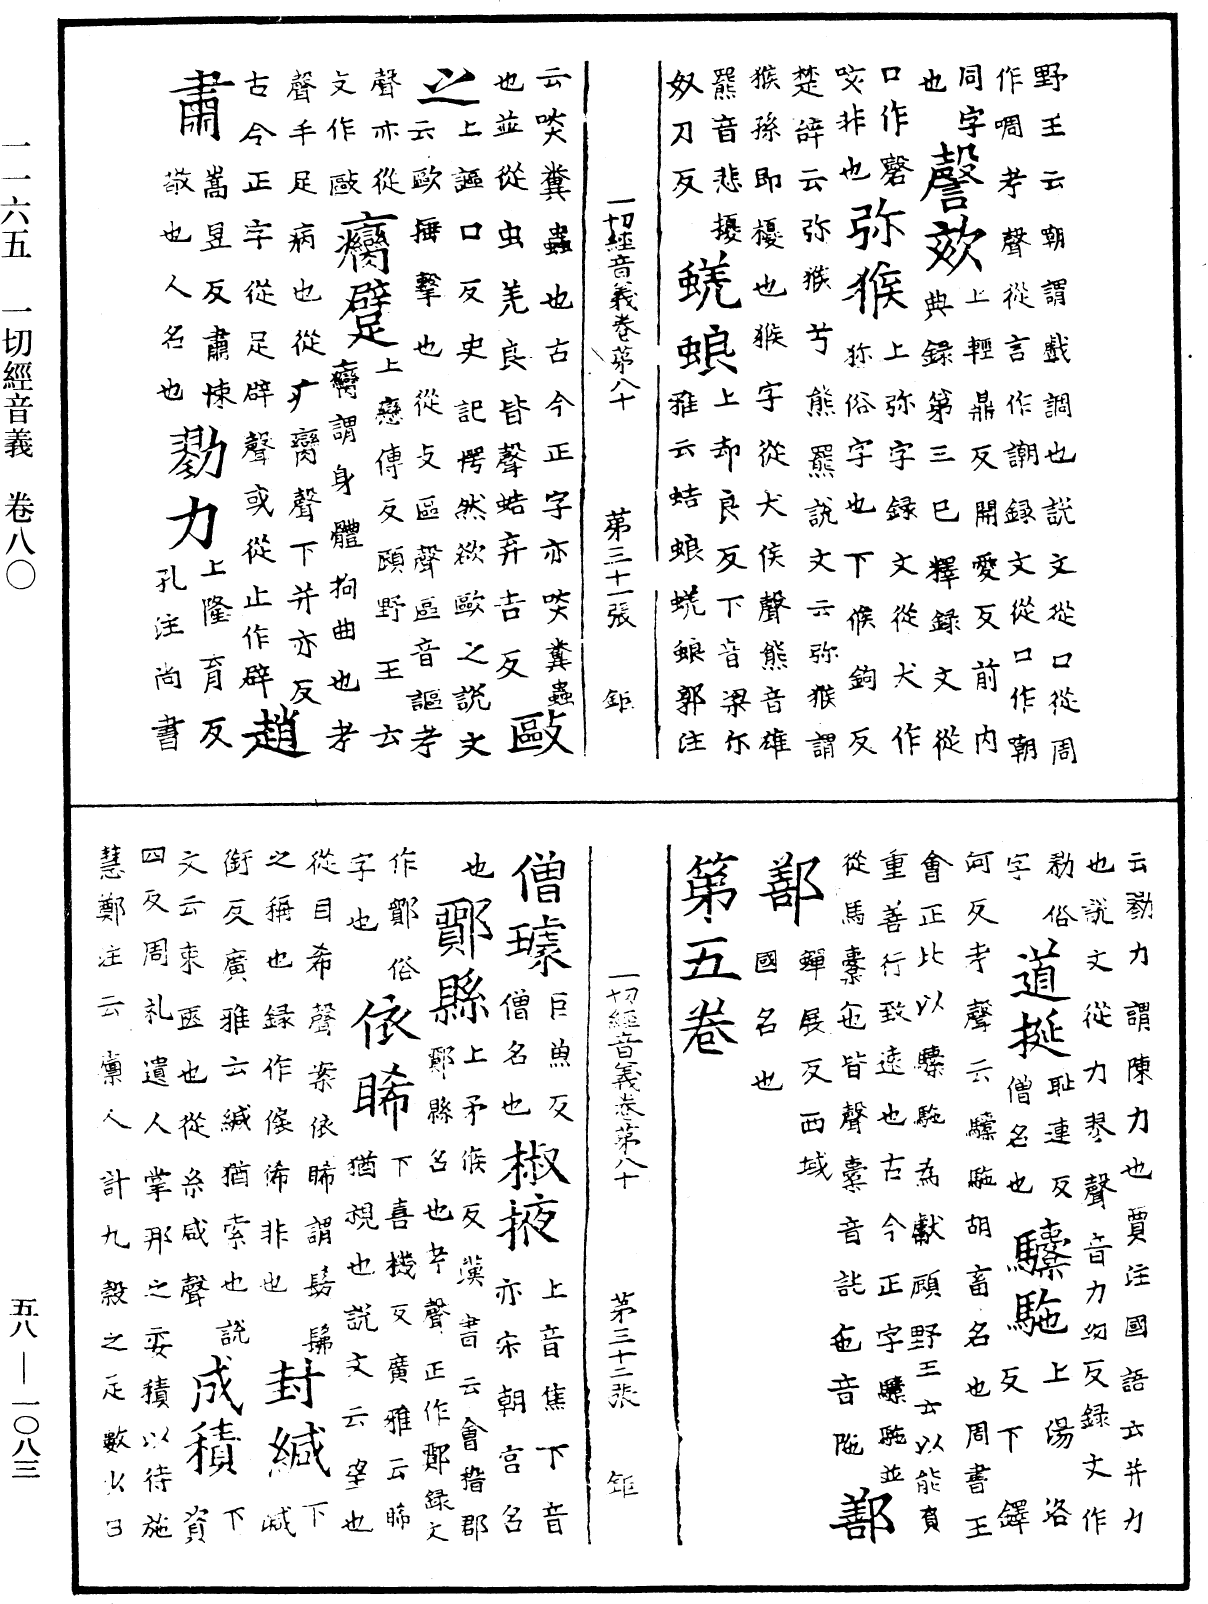 野王云嘲謂戲調也説文從口從周
作啁考聲從言作譋録文從口作朝
同字
也謦欬上輕鼎反開愛反前內
典録第三已釋録文從
口作磬
咳非也弥猴上弥字録文從犬作
猕俗字也下候鉤反
楚辞云弥猴兮熊羆説文云弥猴謂
猴孫即櫌也猴字從犬侯聲熊音雄
羆音悲擾
奴刀反蜣蜋上却良反下音梁尒
雅云蛣蜣蜋郭注
一切經音義卷第八十 第三十一張 鉅
云啖糞蟲也古今正字亦啖糞蟲
也並從虫羌良皆聲蛣弃吉反毆
之上謳口反史記愕然欲歐之説文
云歐捶擊也從攴區聲區音謳考
聲亦從
文作敺癵躄上戀傳反顧野王云
癵謂身體拘曲也考
聲手足病也從疒臠聲下并亦反
古今正字從足辟聲或從止作辟趙
肅蒿昱反肅悚
敬也人名也勠力上隆育反
孔注尚書
云勠力謂陳力也賈注國語云并力
也説文從力翏聲音力幼反録文作
勑俗
字道挻耻連反
僧名也驝馳上湯洛
反下鐸
河反考聲云驝馳胡畜名也周書王
會正北以驝馳為獻顧野王云以能負
重善行致逺也古今正字驝馳並
從馬橐㐌皆聲橐音託㐌音陁鄯
鄯蟬展反西域
國名也
第五卷
一切經音義卷第八十 第三十二張 鉅
僧璩巨魚反
僧名也椒掖上音焦下音
亦宋朝宮名
也鄮縣上矛候反漢書云會稽郡
鄮縣名也考聲正作鄮録文
作鄮俗
字也依睎下喜機反廣雅云睎
猶視也説文云望也
從目希聲案依睎謂髣髴
之稱也録作㑾俙非也封緘下
緘
銜反廣雅云緘猶索也説
文云束篋也從糸咸聲成積下
資
四反周礼遺人掌邦之委積以待施
慧鄭注云廪人計九穀之足數以日
一一六五 一切經音義 卷八〇
五八—一〇八三